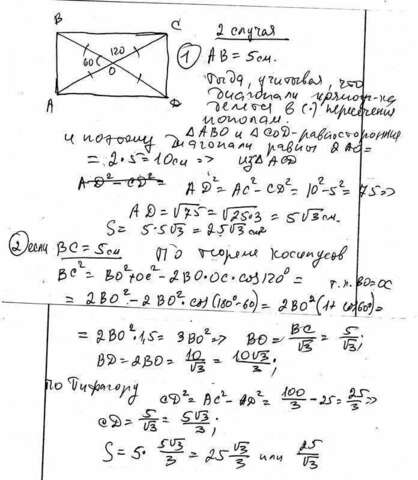 B C
120
60
O
A D
2 случая
① AB = 5см.
Тогда, учитывая, что
диагонали прямоуг-ка
делятся в (·) пересечения
пополам.
и поэтому △ABO и △COD - равносторонние
диагонали равны 2AO =
= 2·5 = 10см => из △ACD
AD² - CD² = AD² = AC² - CD² = 10² - 5² = 75 =>
AD = √75 = √25·3 = 5√3 см.
S = 5·5√3 = 25√3 см²
② если BC = 5см По теореме косинусов
BC² = BO² + OC² - 2BO·OC·cos120° =
т.к. BO = OC
= 2BO² - 2BO²·cos(180°-60) = 2BO²(1 + cos60°) =
= 2BO²·1,5 = 3BO² => BO = BC/√3 = 5/√3;
BD = 2BO = 10/√3 = 10√3/3;
по Пифагору CD² = AC² - AD² = 100/3 - 25 = 25/3 =>
CD = 5/√3 = 5√3/3;
S = 5·5√3/3 = 25√3/3 или 25/√3